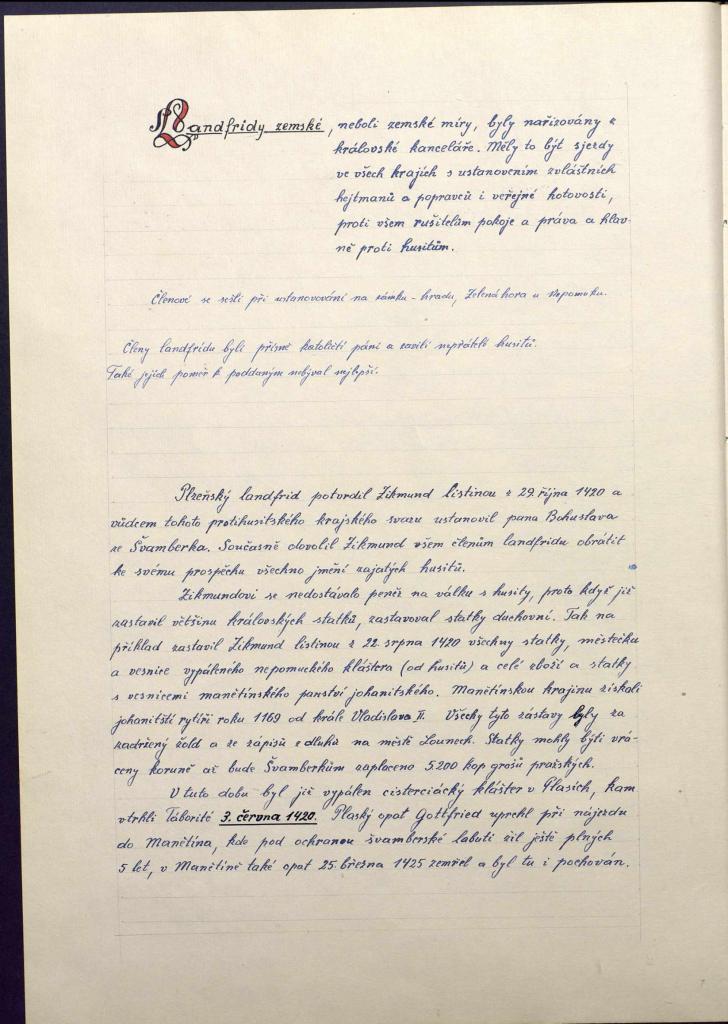 Landfridy zemské, neboli zemské míry, byly nařizovány z
královské kanceláře. Měly to být sjezdy
ve všech krajích s ustanovením zvláštních
hejtmanů a popravců i veřejné hotovosti,
proti všem rušitelům pokoje a práva a hlav-
ně proti husitům.
Členové se sešli při ustanovování na zámku - hradu, Zelená hora u Nepomuku.
Členy landfrídu byli přísně katoličtí páni a zavilí nepřátelé husitů.
Také jejich poměr k poddaným nebýval nejlepší.
Plzeňský landfrid potvrdil Zikmund listinou z 29. října 1420 a
vůdcem tohoto protihusitského krajského svazu ustanovil pana Bohuslava
ze Švamberka. Současně dovolil Zikmund všem členům landfridu obrátit
ke svému prospěchu všechno jmění zajatých husitů.
Zikmundovi se nedostávalo peněz na válku s husity, proto když již
zastavil většinu královských statků, zastavoval statky duchovní. Tak na
příklad zastavil Zikmund listinou z 22. srpna 1420 všechny statky, městečka
a vesnice vypáleného nepomuckého kláštera (od husitů) a celé zboží a statky
s vesnicemi manětínského panství johanitského. Manětínskou krajinu získali
johanitští rytíři roku 1169 od krále Vladislava II. Všecky tyto zástavy byly za
zadržený žold a ze zápisů z dluhů na městě Lounech. Statky mohly býti vrá-
ceny koruně až bude Švamberkům zaplaceno 5.200 kop grošů pražských.
V tuto dobu byl již vypálen cisterciácký klášter v Plasích, kam
vtrhli Táborité 3. června 1420. Plaský opat Gottfried uprchl při nájezdu
do Manětína, kde pod ochranou švamberské labutí žil ještě plných
5 let, v Manětíně také opat 25. března 1425 zemřel a byl tu i pochován.